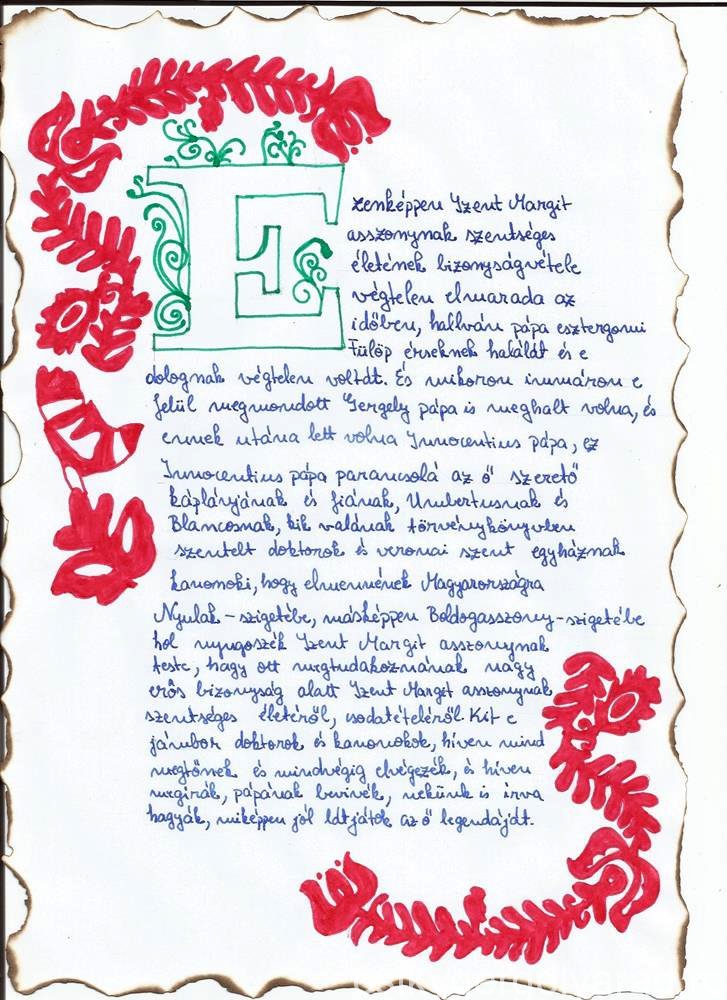 Ezenképpen Szent Margit
asszonynak szentséges
életének bizonyságvétele
végtelen elmarada az
időben, hallván pápa esztergomi
Fülöp érseknek halálát és e
dolognak végtelen voltát. És mikoron immáron e
felül megmondott Gergely pápa is meghalt volna, és
ennek utána lett volna Innocentius pápa, ez
Innocentius pápa parancsolá az ő szerető
káplányjának és fiának, Umbertusnak és
Blancosnak, kik valának törvénykönyvben
szentelt doktorok és veronai szent egyháznak
kanonoki, hogy elmennének Magyarországra
Nyulak-szigetébe, másképpen Boldogasszony-szigetébe
hol nyugoszék Szent Margit asszonynak
teste, hagy ott megtudakoznának nagy
erős bizonyság alatt Szent Margit asszonynak
szentséges életéről, csodatételéről. Kit e
jámbor doktorok és kanonokok, híven mind
megtőnek és mindvégig elvégezék, és híven
megírák, pápának bevivék, nekünk is írva
hagyák, miképpen jól látjátok az ő legendáját.